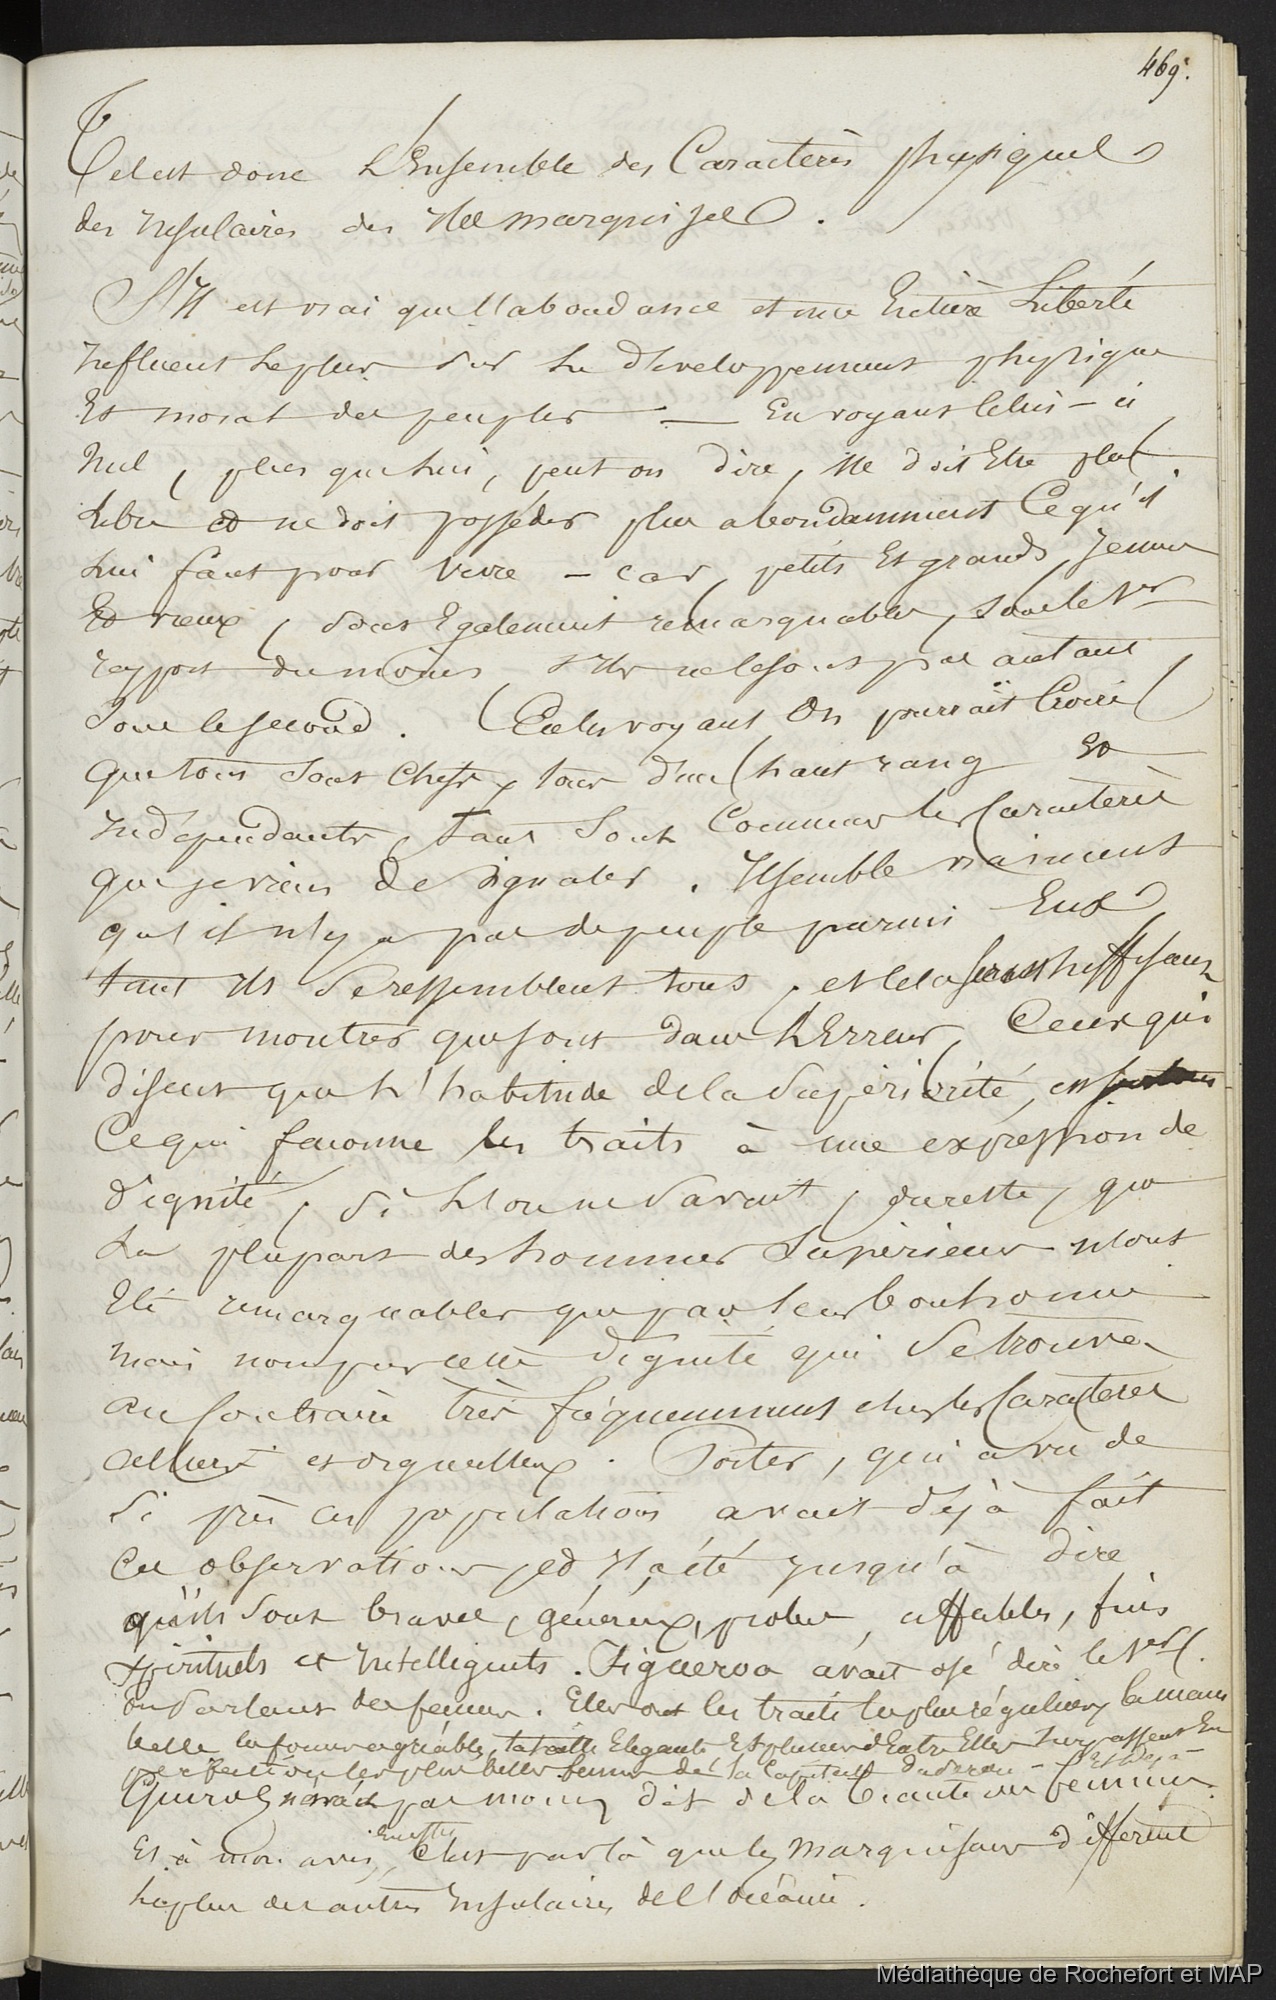 469.
Tel est donc L'Ensemble des Caractères physiques
des Insulaires des Iles marquises.
S'Il est vrai que l'abondance et une Entière Liberté
Influent le plus sur Le développement physique
Et moral des peuples — En voyant Celui-ci
Nul, plus que lui, peut on dire, Ne doit Etre plus
Libre et ne doit posséder plus abondamment Ce qu'il
Lui faut pour vivre - car, petits Et grands, Jeunes
Et vieux, sont Egalement remarquables, sous le 1er
rapport du moins, s'Ils ne le sont pas autant
sous le second. En les voyant On pourrait Croire
que tous sont Chefs, tous d'un haut rang Et
Indépendants, tant sont Communs les Caractères
que je viens de signaler. Il semble vraiment
qu'il n'y a pas de peuple parmi Eux
tant Ils se ressemblent tous, et cela serait suffisant
pour montrer que sont dans L'Erreur, Ceux qui
disent que L'habitude de la supériorité, est
Ce qui faconne les traits à une expression de
dignité, si L'on ne savait, du reste, que
La plupart des hommes supérieurs n'ont
Eté remarquables que par leur bonhomie
mais non par cette dignité qui se trouve
au Contraire très fréquemment chez les Caractères
altiers et orgueilleux. Porter, qui a vu de
si près ces populations avait déjà fait
Ces observations, et Il a été Jusqu'à dire
qu'ils sont braves, généreux, probes, affables, fins
spirituels et Intelligents. Figueroa avait osé dire le 1er
En parlant des femmes. Elles ont les traits les plus réguliers, la main
belle la forme agréable, la taille Elégante Et plusieurs d'Entre Elles surpassent En
perfection les plus belles femmes de la Capitale du Pérou - Et déjà
Quiros n'avait pas moins dit de la beauté des femmes.
Et à mon avis, ensuite, C'est par là que les Marquisans différent
le plus des autres Insulaires de l'océanie.
Médiathèque de Rochefort et MAP